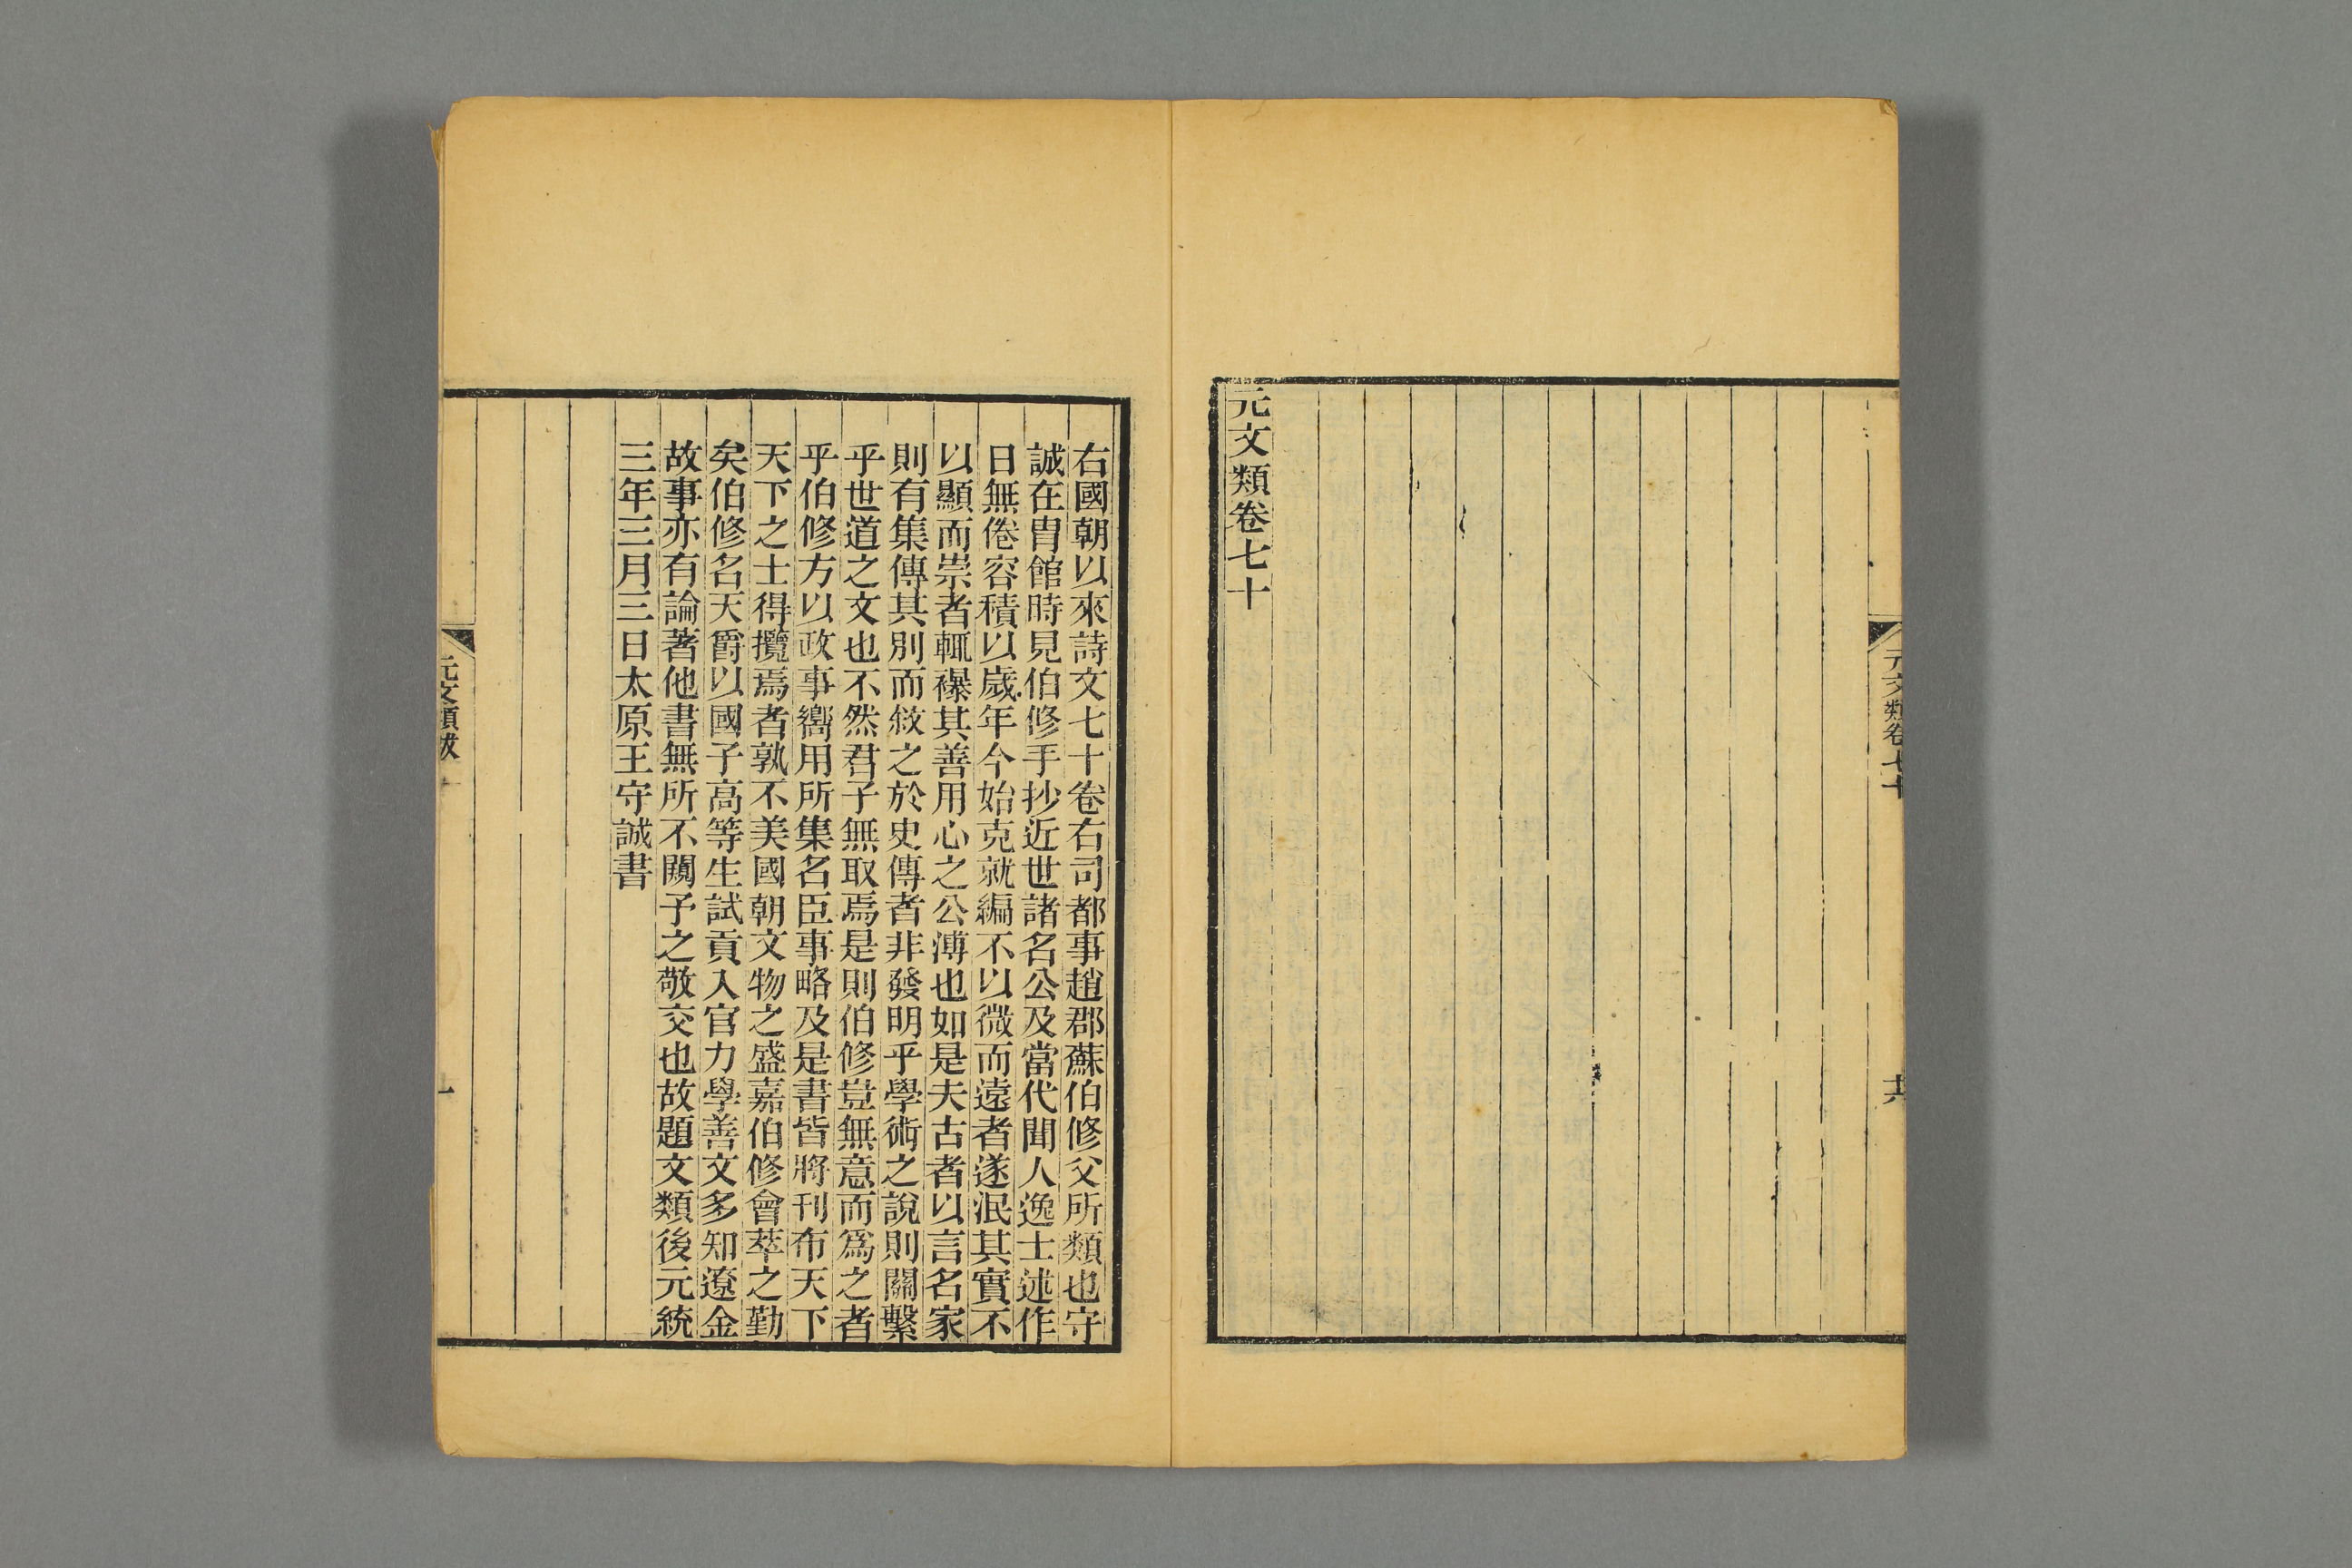 元文類卷七十
十六
元文類卷七十
右國朝以來詩文七十卷右司都事趙郡蘇伯修父所類也守
誠在胄館時見伯修手抄近世諸名公及當代聞人逸士述作
日無倦容積以歲年今始克就編不以微而遠者遂泯其實不
以顯而崇者輒襮其善用心之公溥也如是夫古者以言名家
則有集傳其別而敘之於史傳者非發明乎學術之說則關繫
乎世道之文也不然君子無取焉是則伯修豈無意而爲之者
乎伯修方以政事嚮用所集名臣事略及是書皆將刊布天下
天下之士得攬焉者孰不美國朝文物之盛嘉伯修會萃之勤
矣伯修名天爵以國子高等生試貢入官力學善文多知遼金
故事亦有論著他書無所不闚予之敬交也故題文類後元統
三年三月三日太原王守誠書
元文類跋